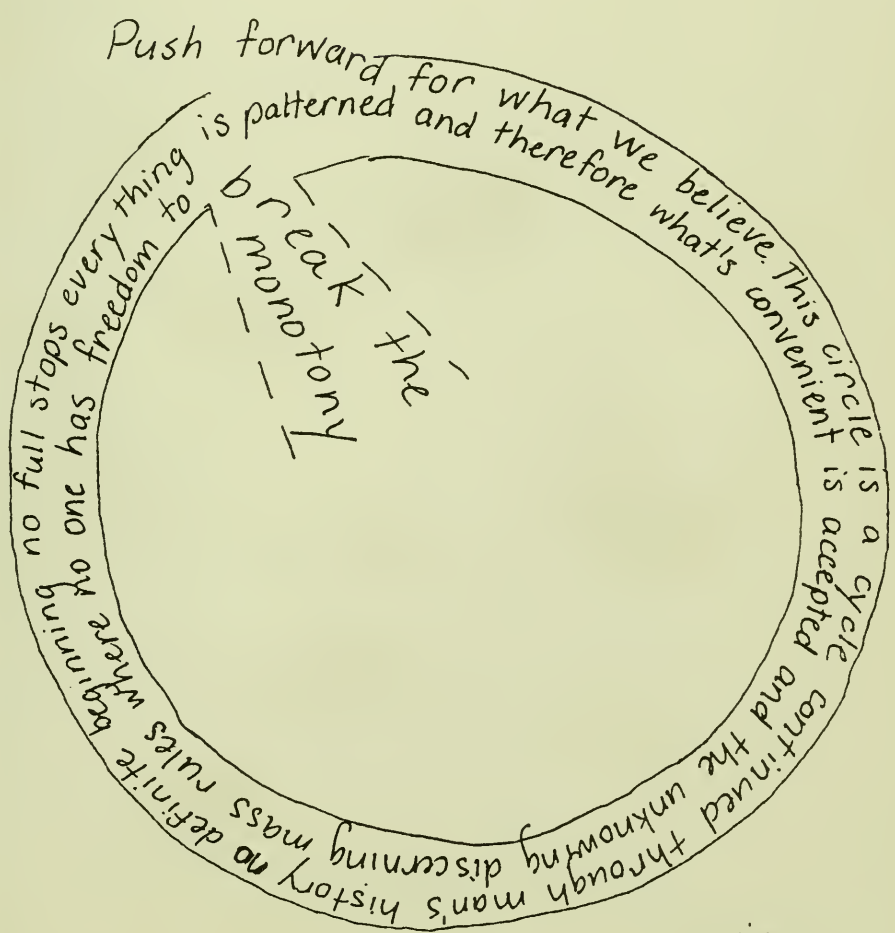 Push forward for what we believe. This circle is a cycle continued through man's history no definite beginning no full stops every thing
is patterned and therefore what's convenient is accepted and the unknowing discerning mass rules where no one has freedom to
break the
monotony